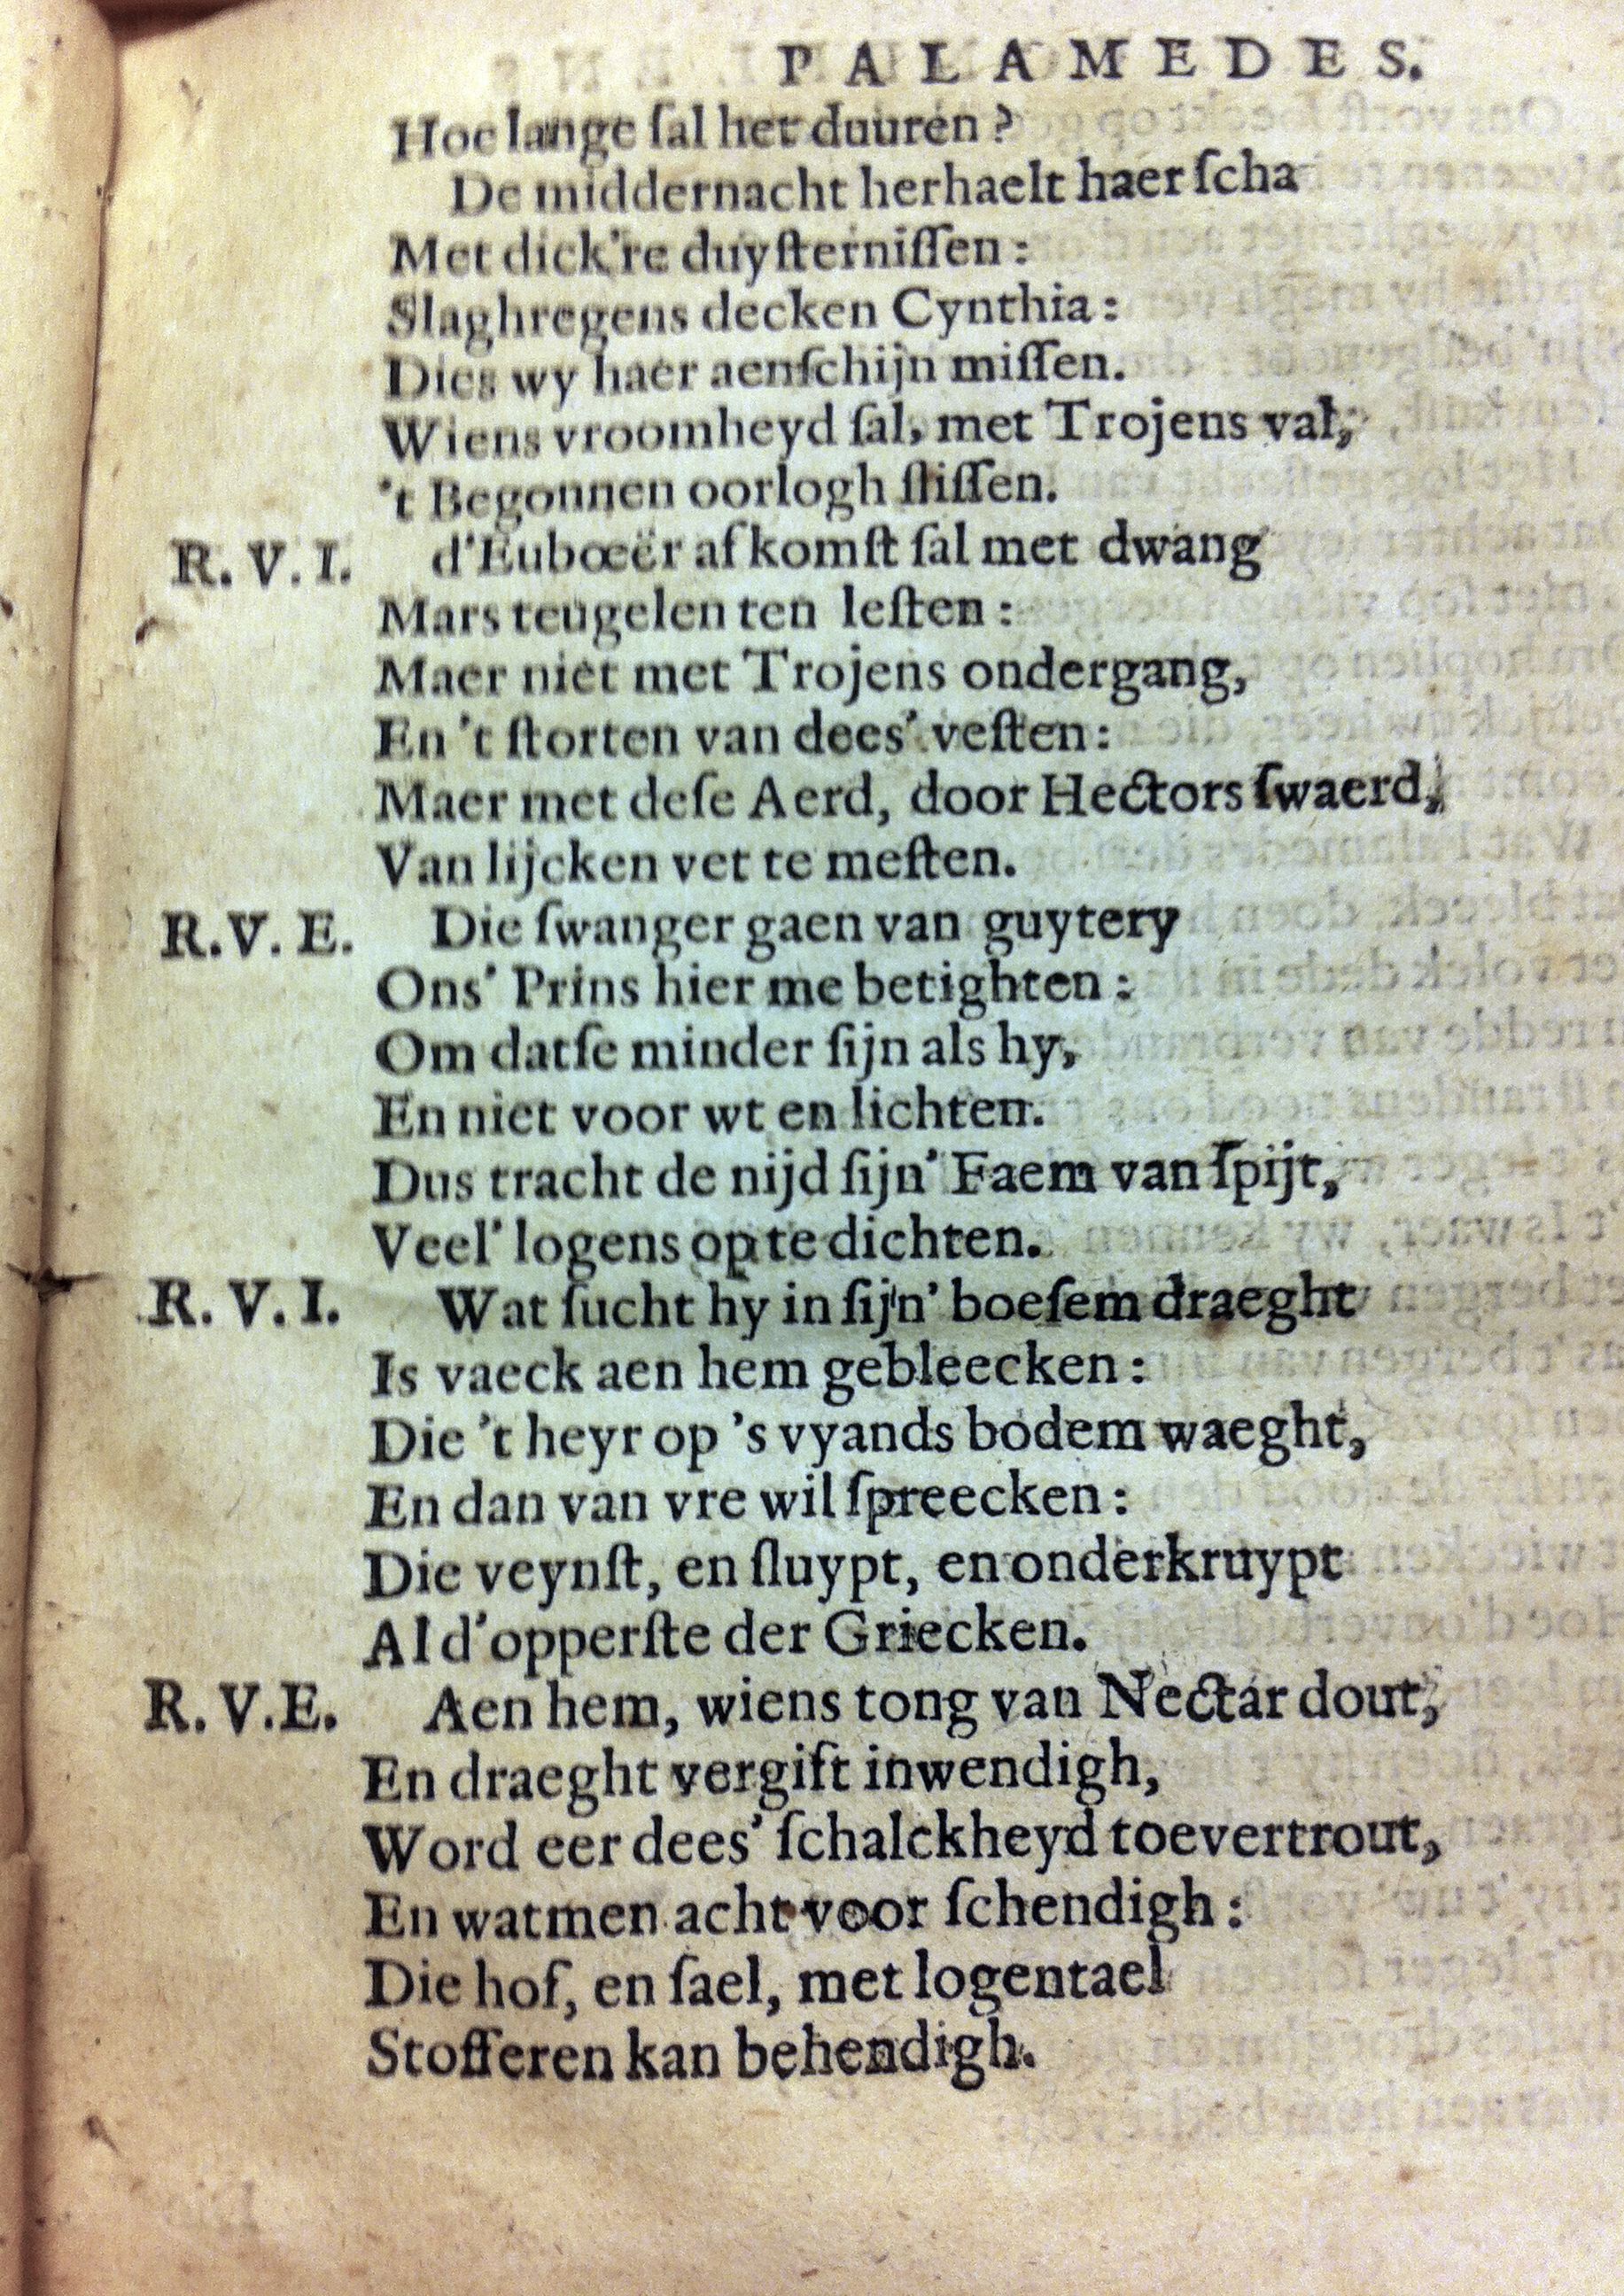 PALAMEDES.
Hoe lange ſal het duuren?
De middernacht herhaelt haer ſcha
Met dick're duyſterniſſen:
Slaghregens decken Cynthia:
Dies wy haer aenſchijn miſſen.
Wiens vroomheyd ſal, met Trojens val,
't Begonnen oorlogh ſliſſen.
R. V. I. d'Eubœër afkomſt ſal met dwang
Mars teugelen ten leſten:
Maer niet met Trojens ondergang,
En 't ſtorten van dees' veſten:
Maer met deſe Aerd, door Hectors ſwaerd,
Van lijcken vet te meſten.
R. V. E. Die ſwanger gaen van guytery
Ons' Prins hier me betighten:
Om datſe minder ſijn als hy,
En niet voor wt en lichten.
Dus tracht de nijd ſijn' Faem van ſpijt,
Veel' logens op te dichten.
R. V. I. Wat ſucht hy in ſijn' boeſem draeght
Is vaeck aen hem gebleecken:
Die 't heyr op 's vyands bodem waeght,
En dan van vre wil ſpreecken:
Die veynſt, en ſluypt, en onderkruypt
Al d'opperſte der Griecken.
R. V. E. Aen hem, wiens tong van Nectar dout,
En draeght vergift inwendigh,
Word eer dees' ſchalckheyd toevertrout,
En watmen acht voor ſchendigh:
Die hof, en ſael, met logentael
Stofferen kan behendigh.